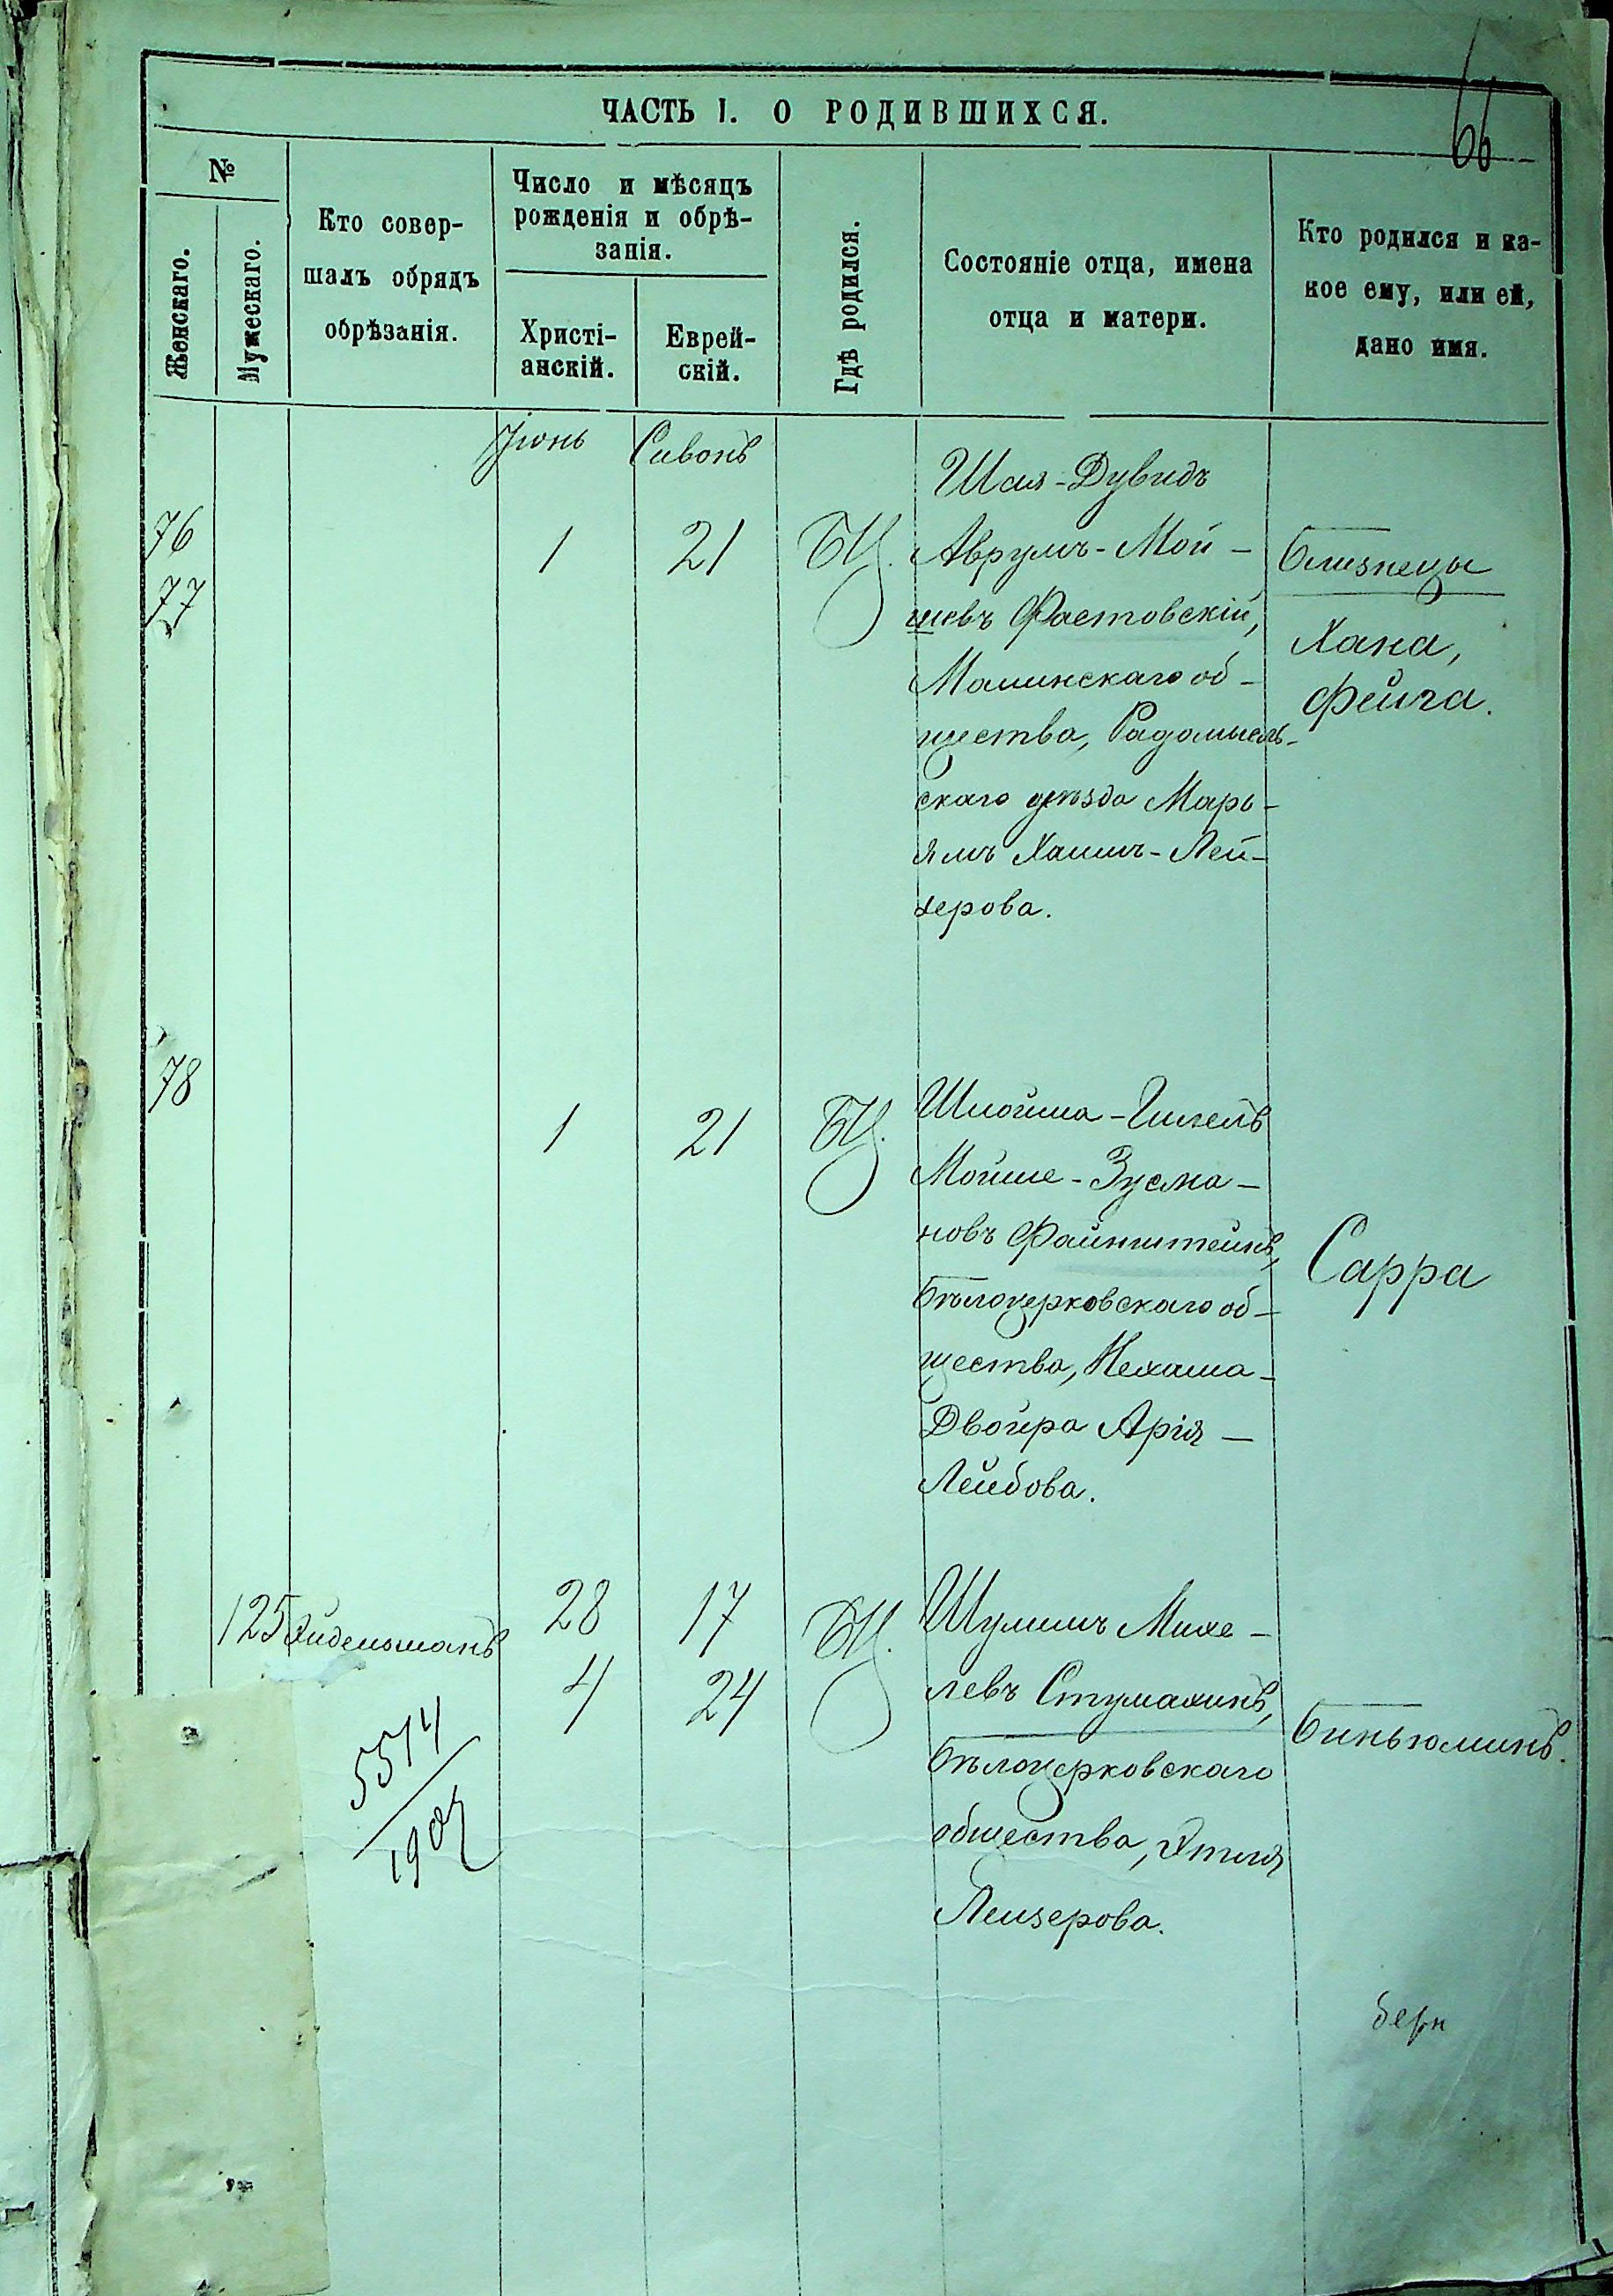 66
ЧАСТЬ I. О РОДИВШИХСЯ.
№
Женскаго.
Мужескаго.
Кто совер-
шалъ обрядъ
обрѣзанія.
Число и мѣсяцъ
рожденія и обрѣ-
занія.
Христі-
анскій.
Еврей-
скій.
Гдѣ родился.
Состояніе отца, имена
отца и матери.
Кто родился и ка-
кое ему, или ей,
дано имя.
Іюнь Сивонъ
76
77
1 21 БЦ.
Шая-Дувидъ
Аврумъ-Мой-
шевъ Фастовскій,
Малинскаго об-
щества, Радомысль-
скаго уѣзда Марь-
ямъ Хаимъ-Лей-
зерова.
Близнецы
Хана,
Фейга.
78
1 21 БЦ.
Шлойма-Гилель
Мойше-Зусма-
новъ Файнштейнъ,
Бѣлоцерковскаго об-
щества, Нехама-
Двойра Арія-
Лейбова.
Сарра
125 Эйдельманъ
28 17 БЦ.
4 24
Шулимъ Михе-
левъ Стумахинъ,
Бѣлоцерковскаго
общества, Этля
Лейзерова.
Биньюминъ.
5514
190